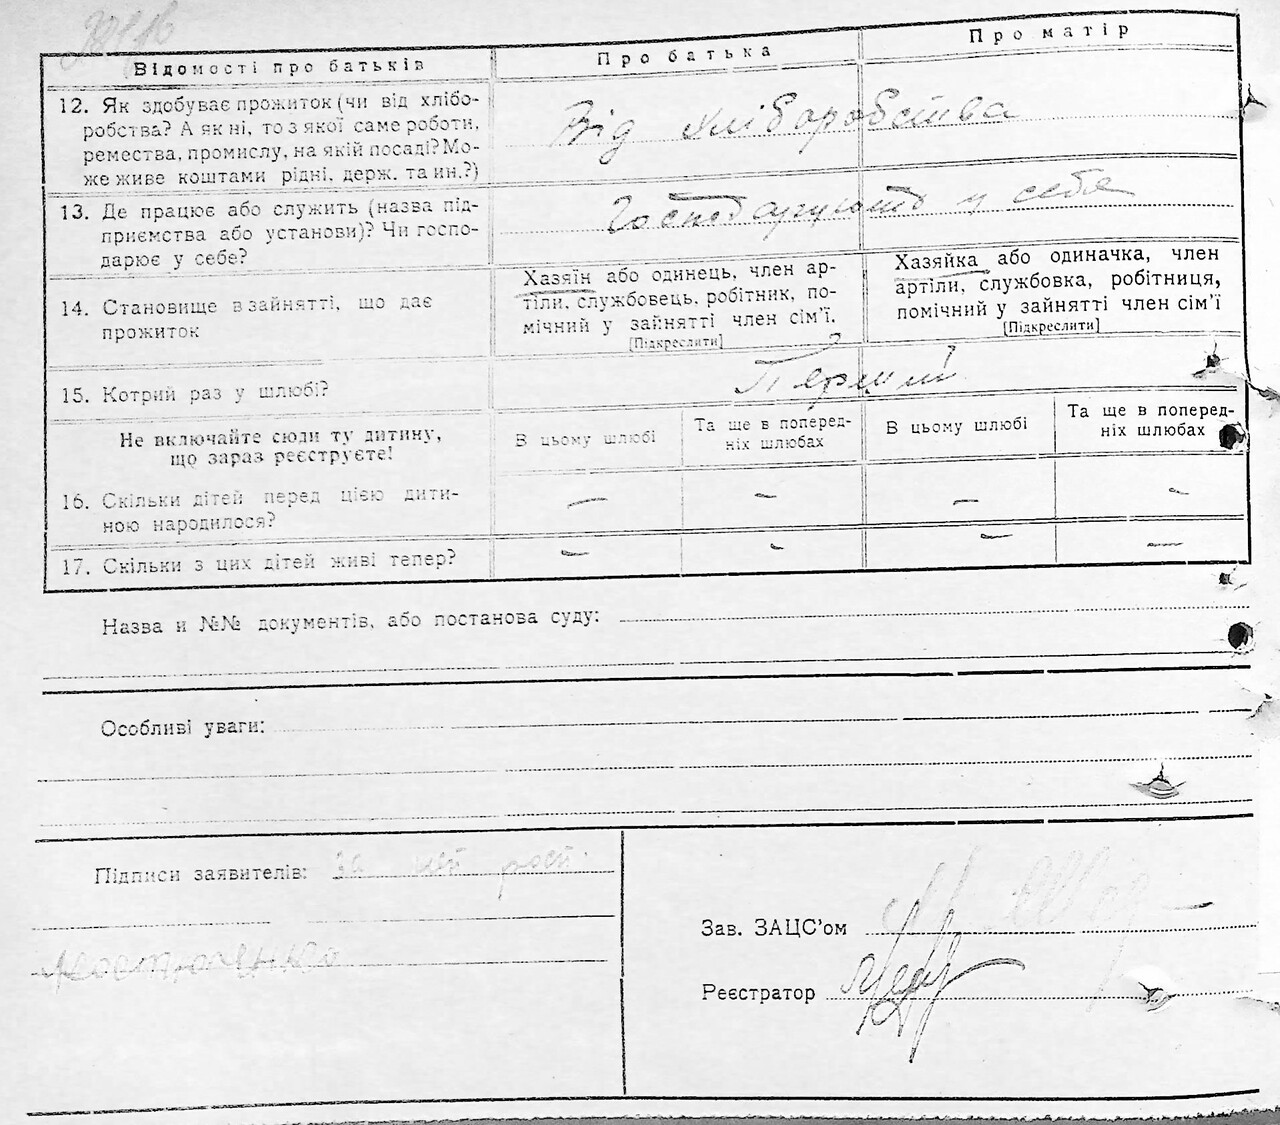 Відомості про батьків
Про батька
Про матір
12. Як здобуває прожиток (чи від хлібо-
робства? А як ні, то з якої саме роботи,
ремества, промислу, на якій посаді? Мо-
же живе коштами рідні, держ. та ин.?)
Від хліборобства
13. Де працює або служить (назва під-
приємства або установи)? Чи госпо-
дарює у себе?
Господарують у себе
14. Становище в зайнятті, що дає
прожиток
Хазяїн або одинець, член ар-
тіли, службовець, робітник, по-
мічний у зайнятті член сім'ї.
[Підкреслити]
Хазяйка або одиначка, член
артіли, службовка, робітниця,
помічний у зайнятті член сім'ї
[Підкреслити]
15. Котрий раз у шлюбі?
Перший
Не включайте сюди ту дитину,
що зараз реєструєте!
В цьому шлюбі
Та ще в поперед-
ніх шлюбах
В цьому шлюбі
Та ще в поперед-
ніх шлюбах
16. Скільки дітей перед цією дити-
ною народилося?
— — — —
17. Скільки з цих дітей живі тепер?
— — — —
Назва й №№ документів, або постанова суду:
Особливі уваги:
Підписи заявителів: за неї
Костюченко
Зав. ЗАЦС'ом
Реєстратор